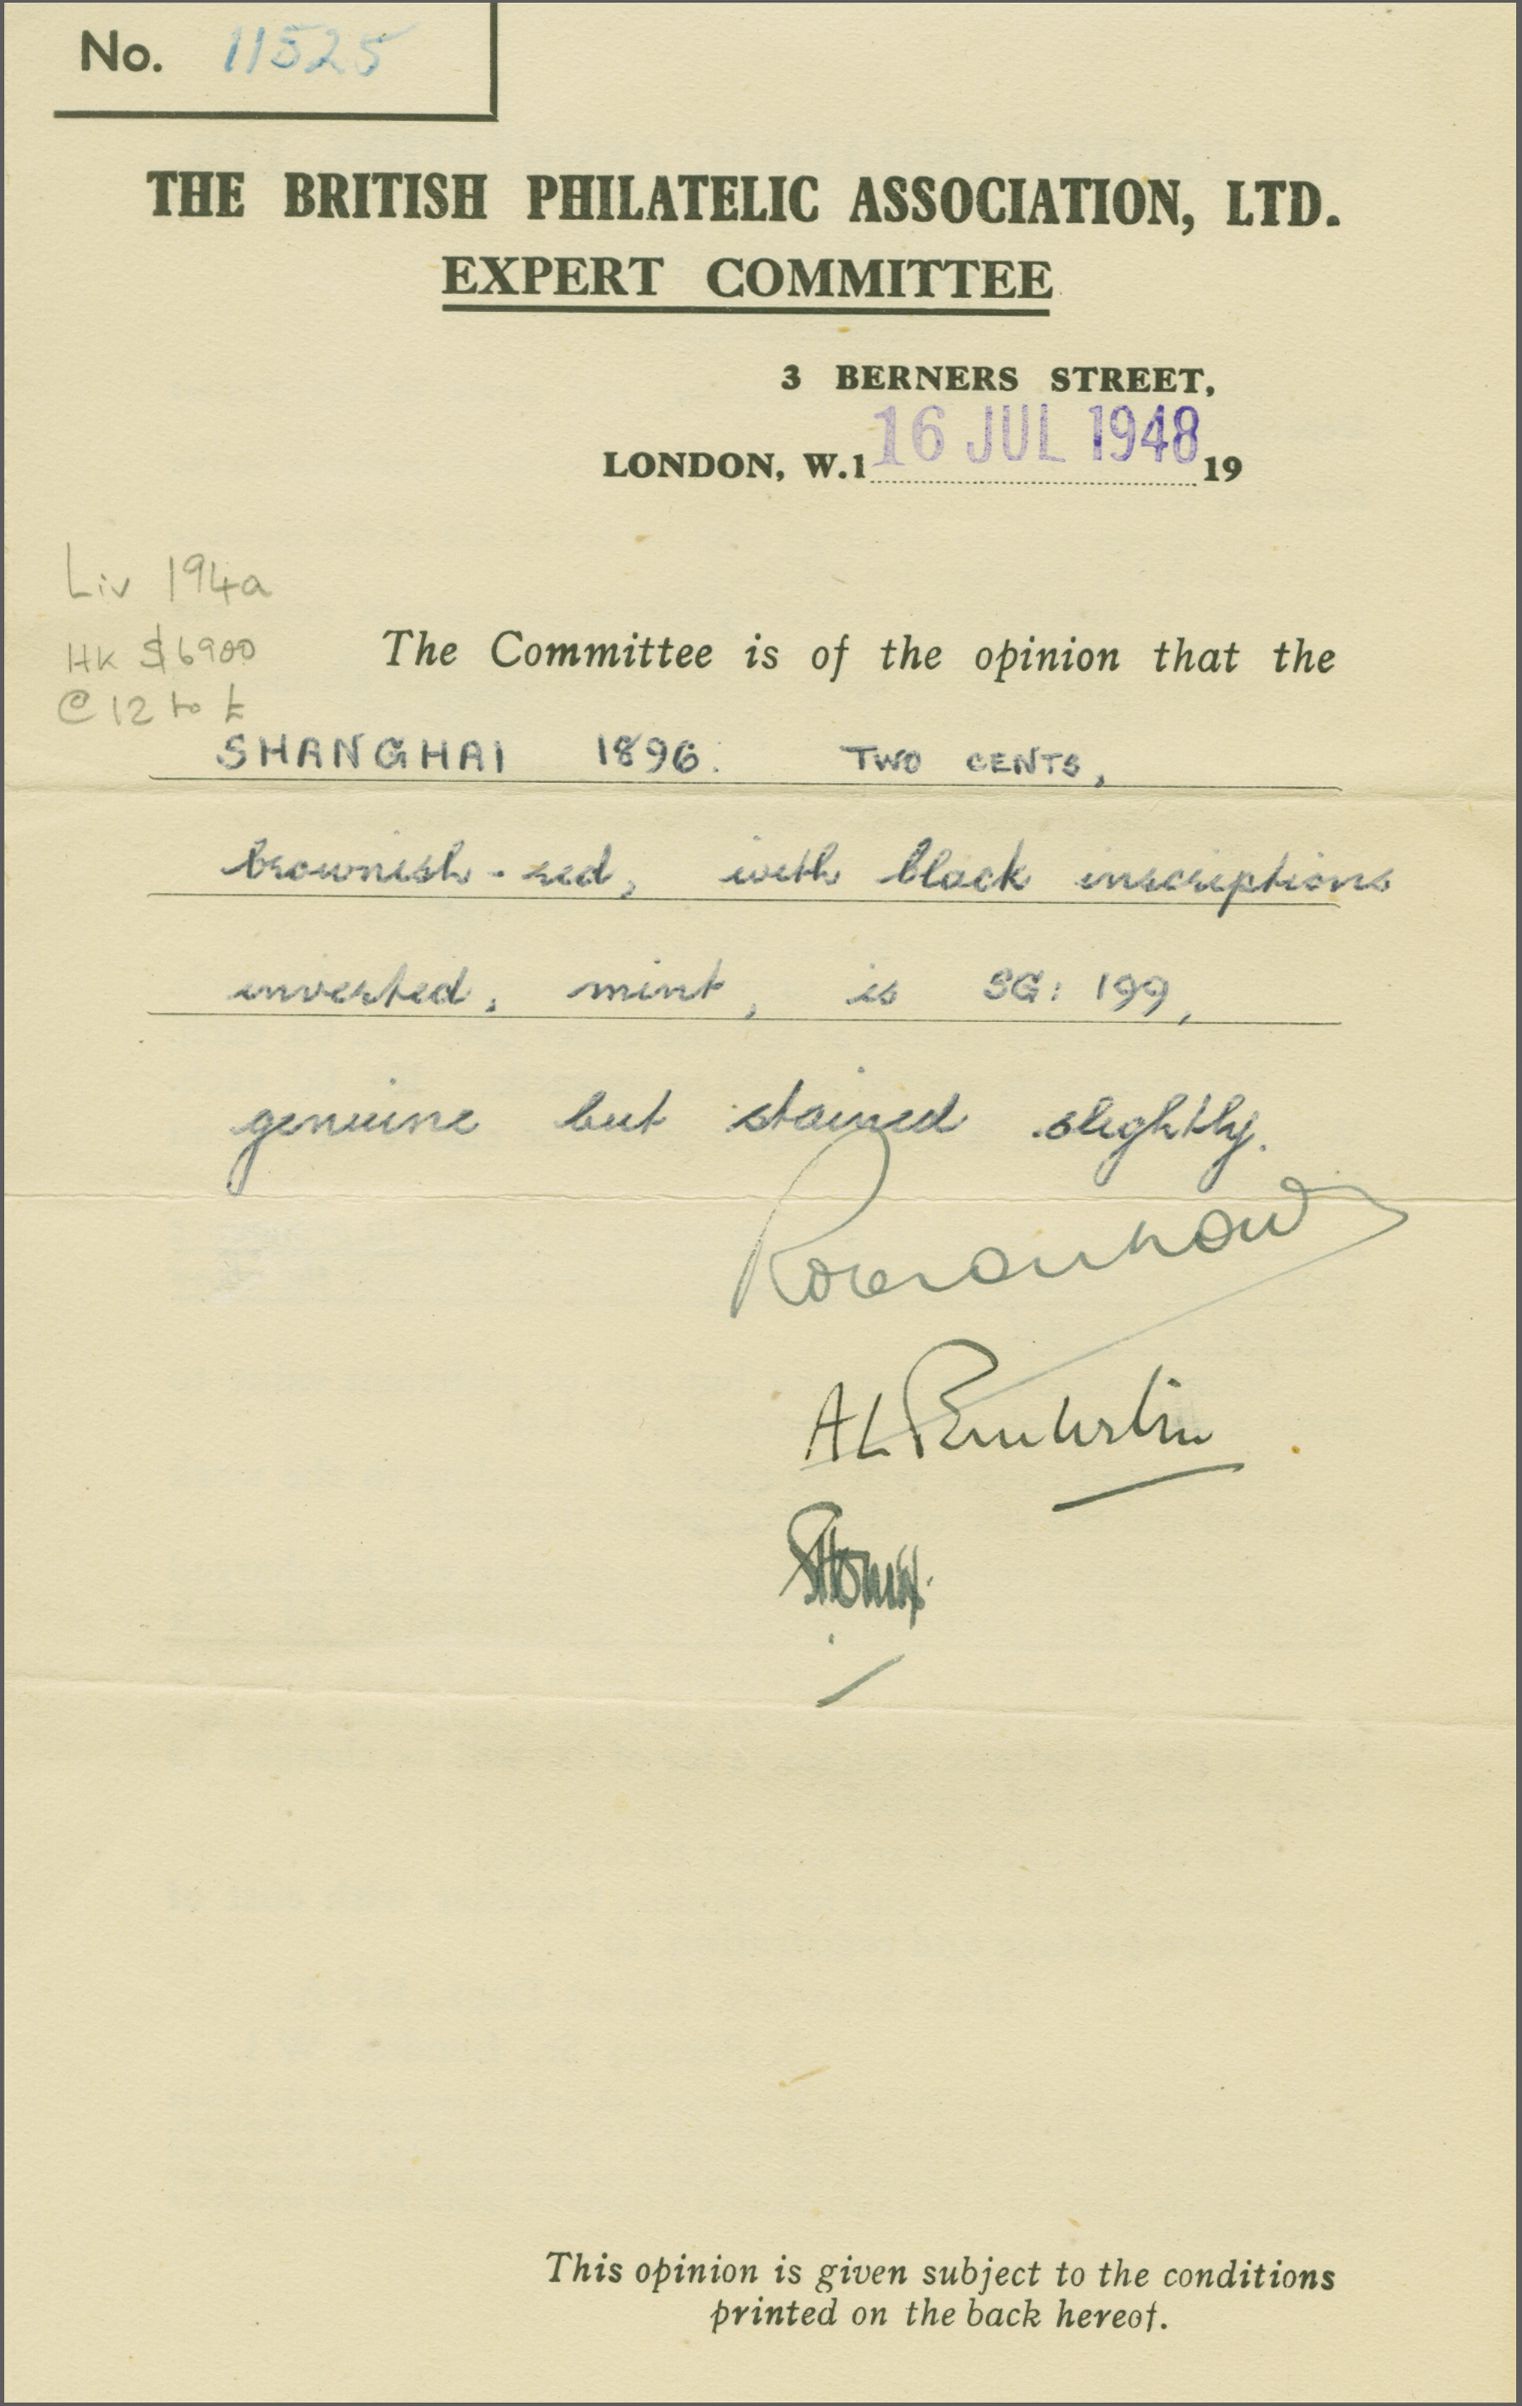 No. 11525
THE BRITISH PHILATELIC ASSOCIATION, LTD.
EXPERT COMMITTEE
3 BERNERS STREET,
LONDON, W.1 16 JUL 1948 19
Liv 194a
HK $6900
@ 12 to £
The Committee is of the opinion that the
SHANGHAI 1896. TWO CENTS,
brownish-red, with black inscriptions
inverted, mint, is SG: 199,
genuine but stained slightly.
A L Pemberton
This opinion is given subject to the conditions
printed on the back hereof.